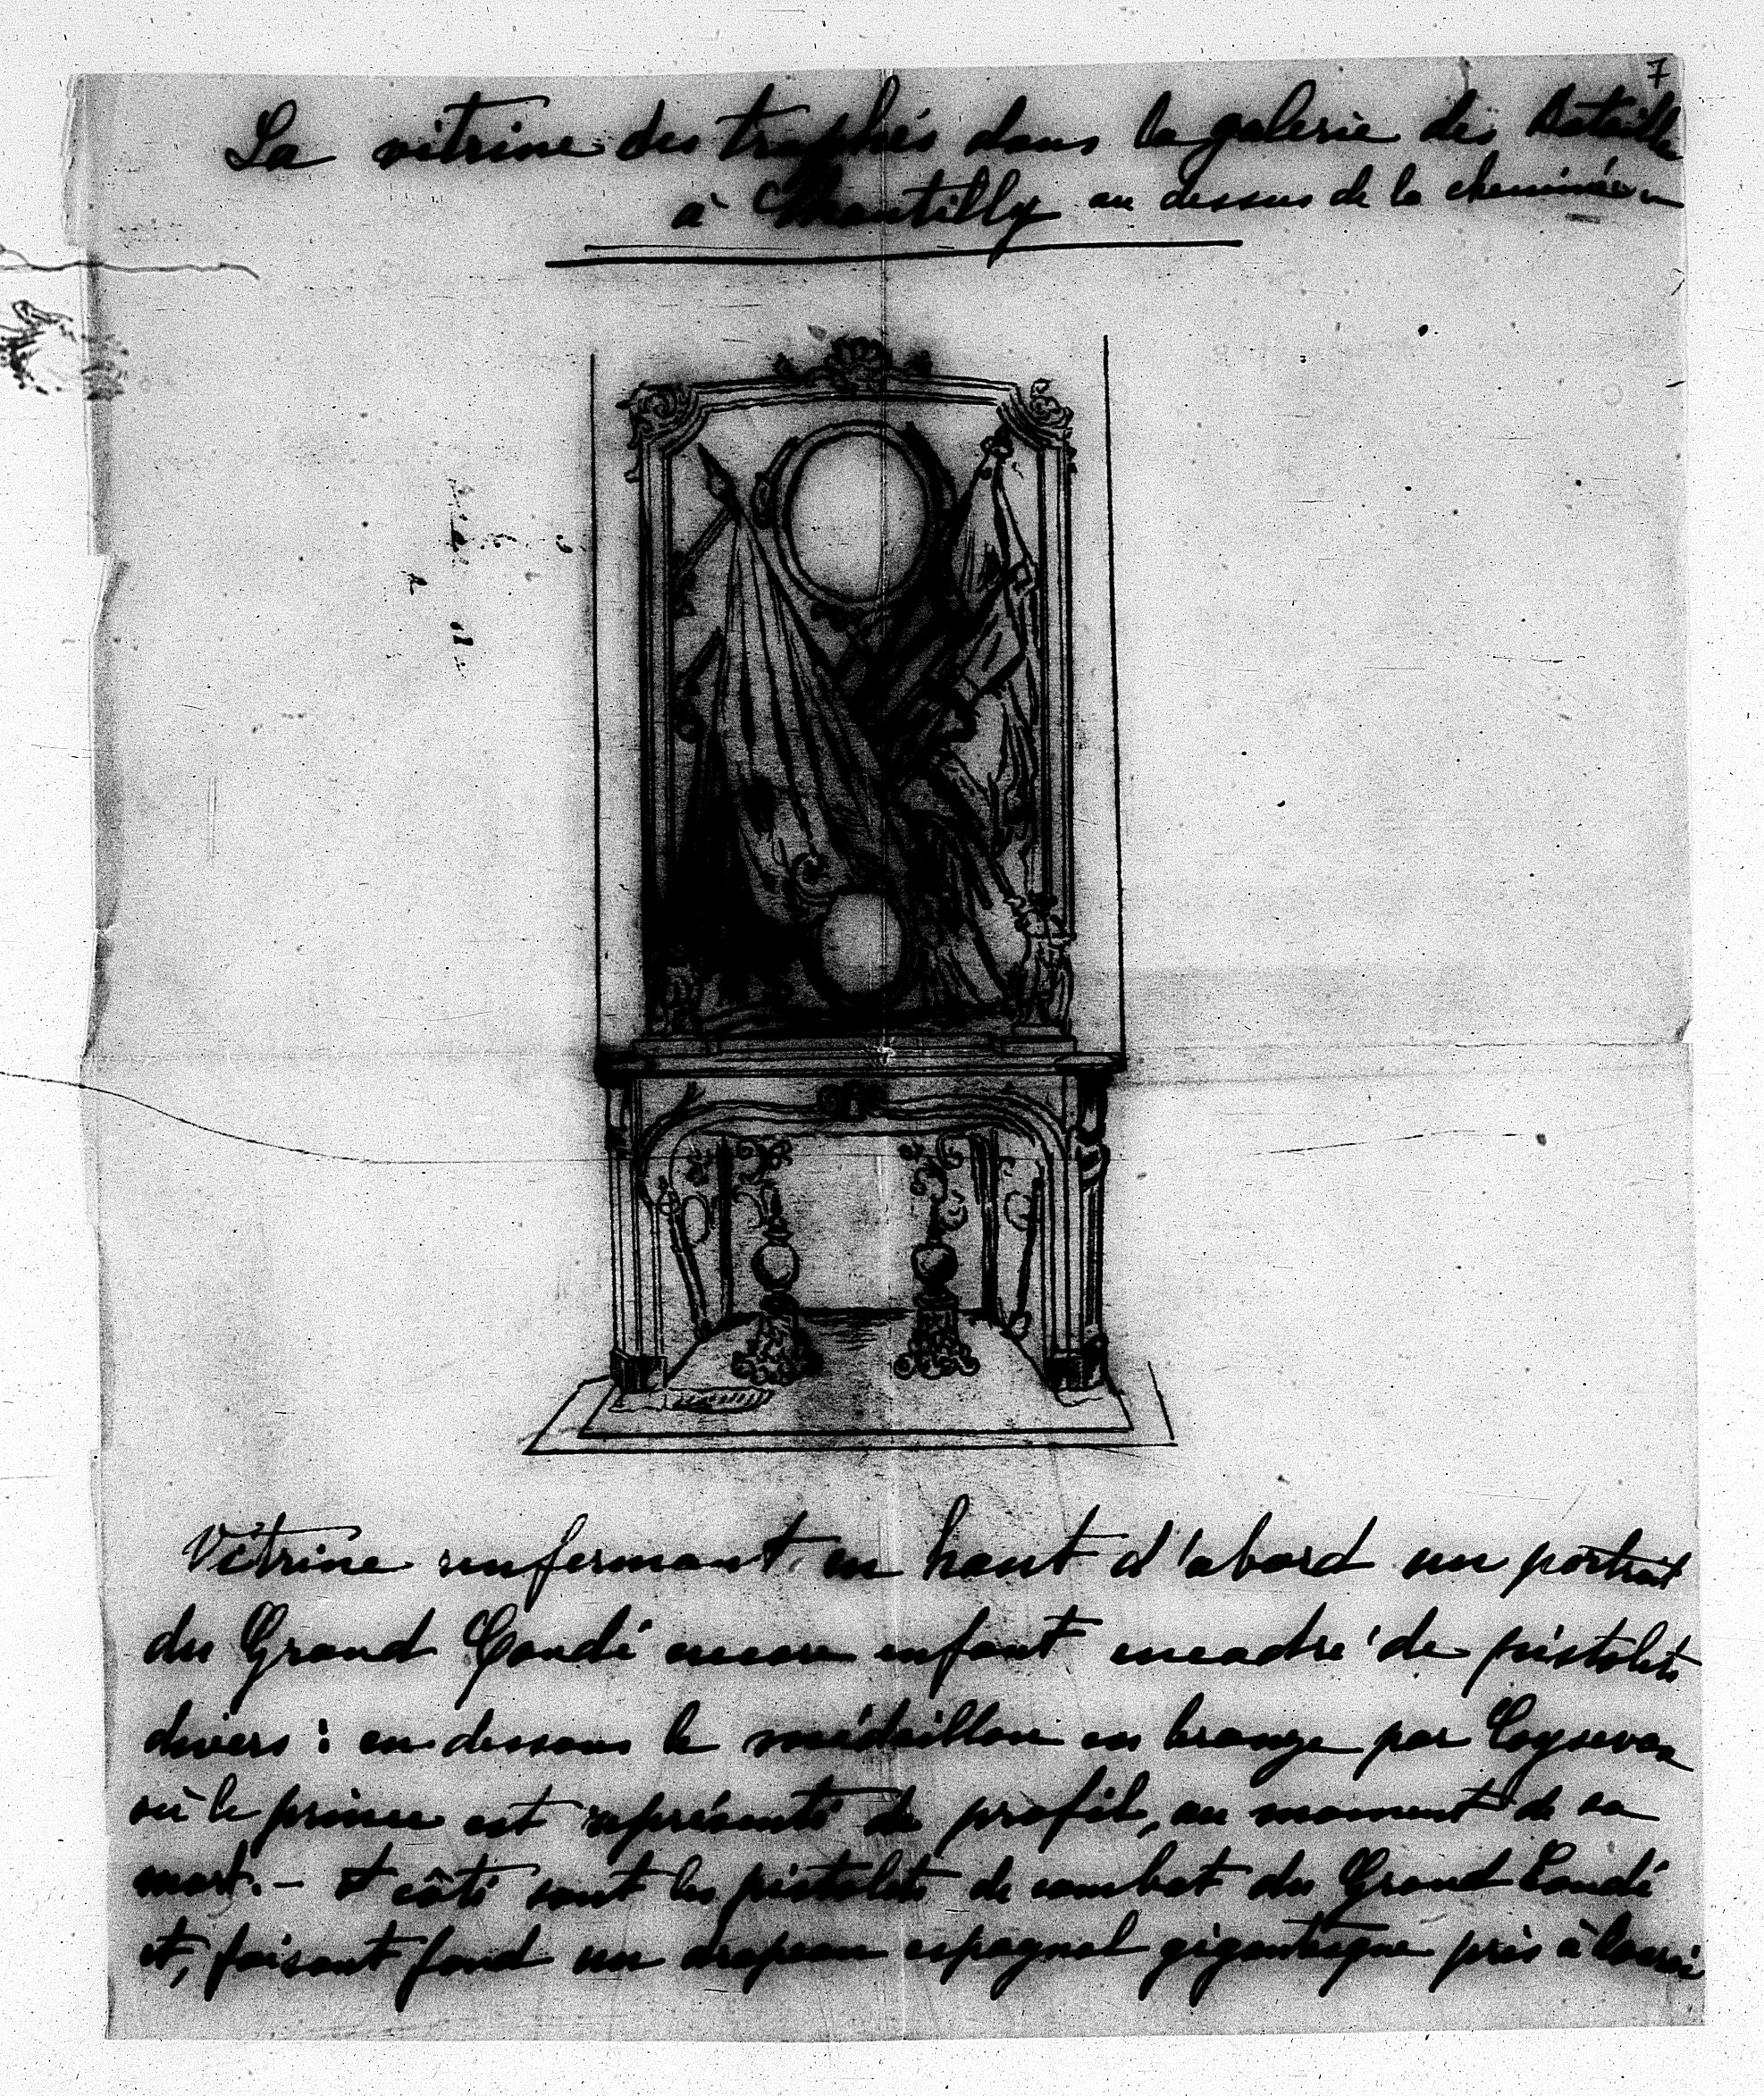 7
La vitrine des trophés dans la galerie des Bataille
à Chantilly au dessus de la cheminée
Vitrine renfermant en haut d'abord un portrait
du Grand Condé encore enfant encadré de pistolets
divers : en dessous le médaillon en bronze par Coysevox
où le prince est représenté de profil, au moment de sa
mort. — A côté sont les pistolets de combat du Grand Condé
et, faisant fond un drapeau espagnol gigantesque pris à Rocroi